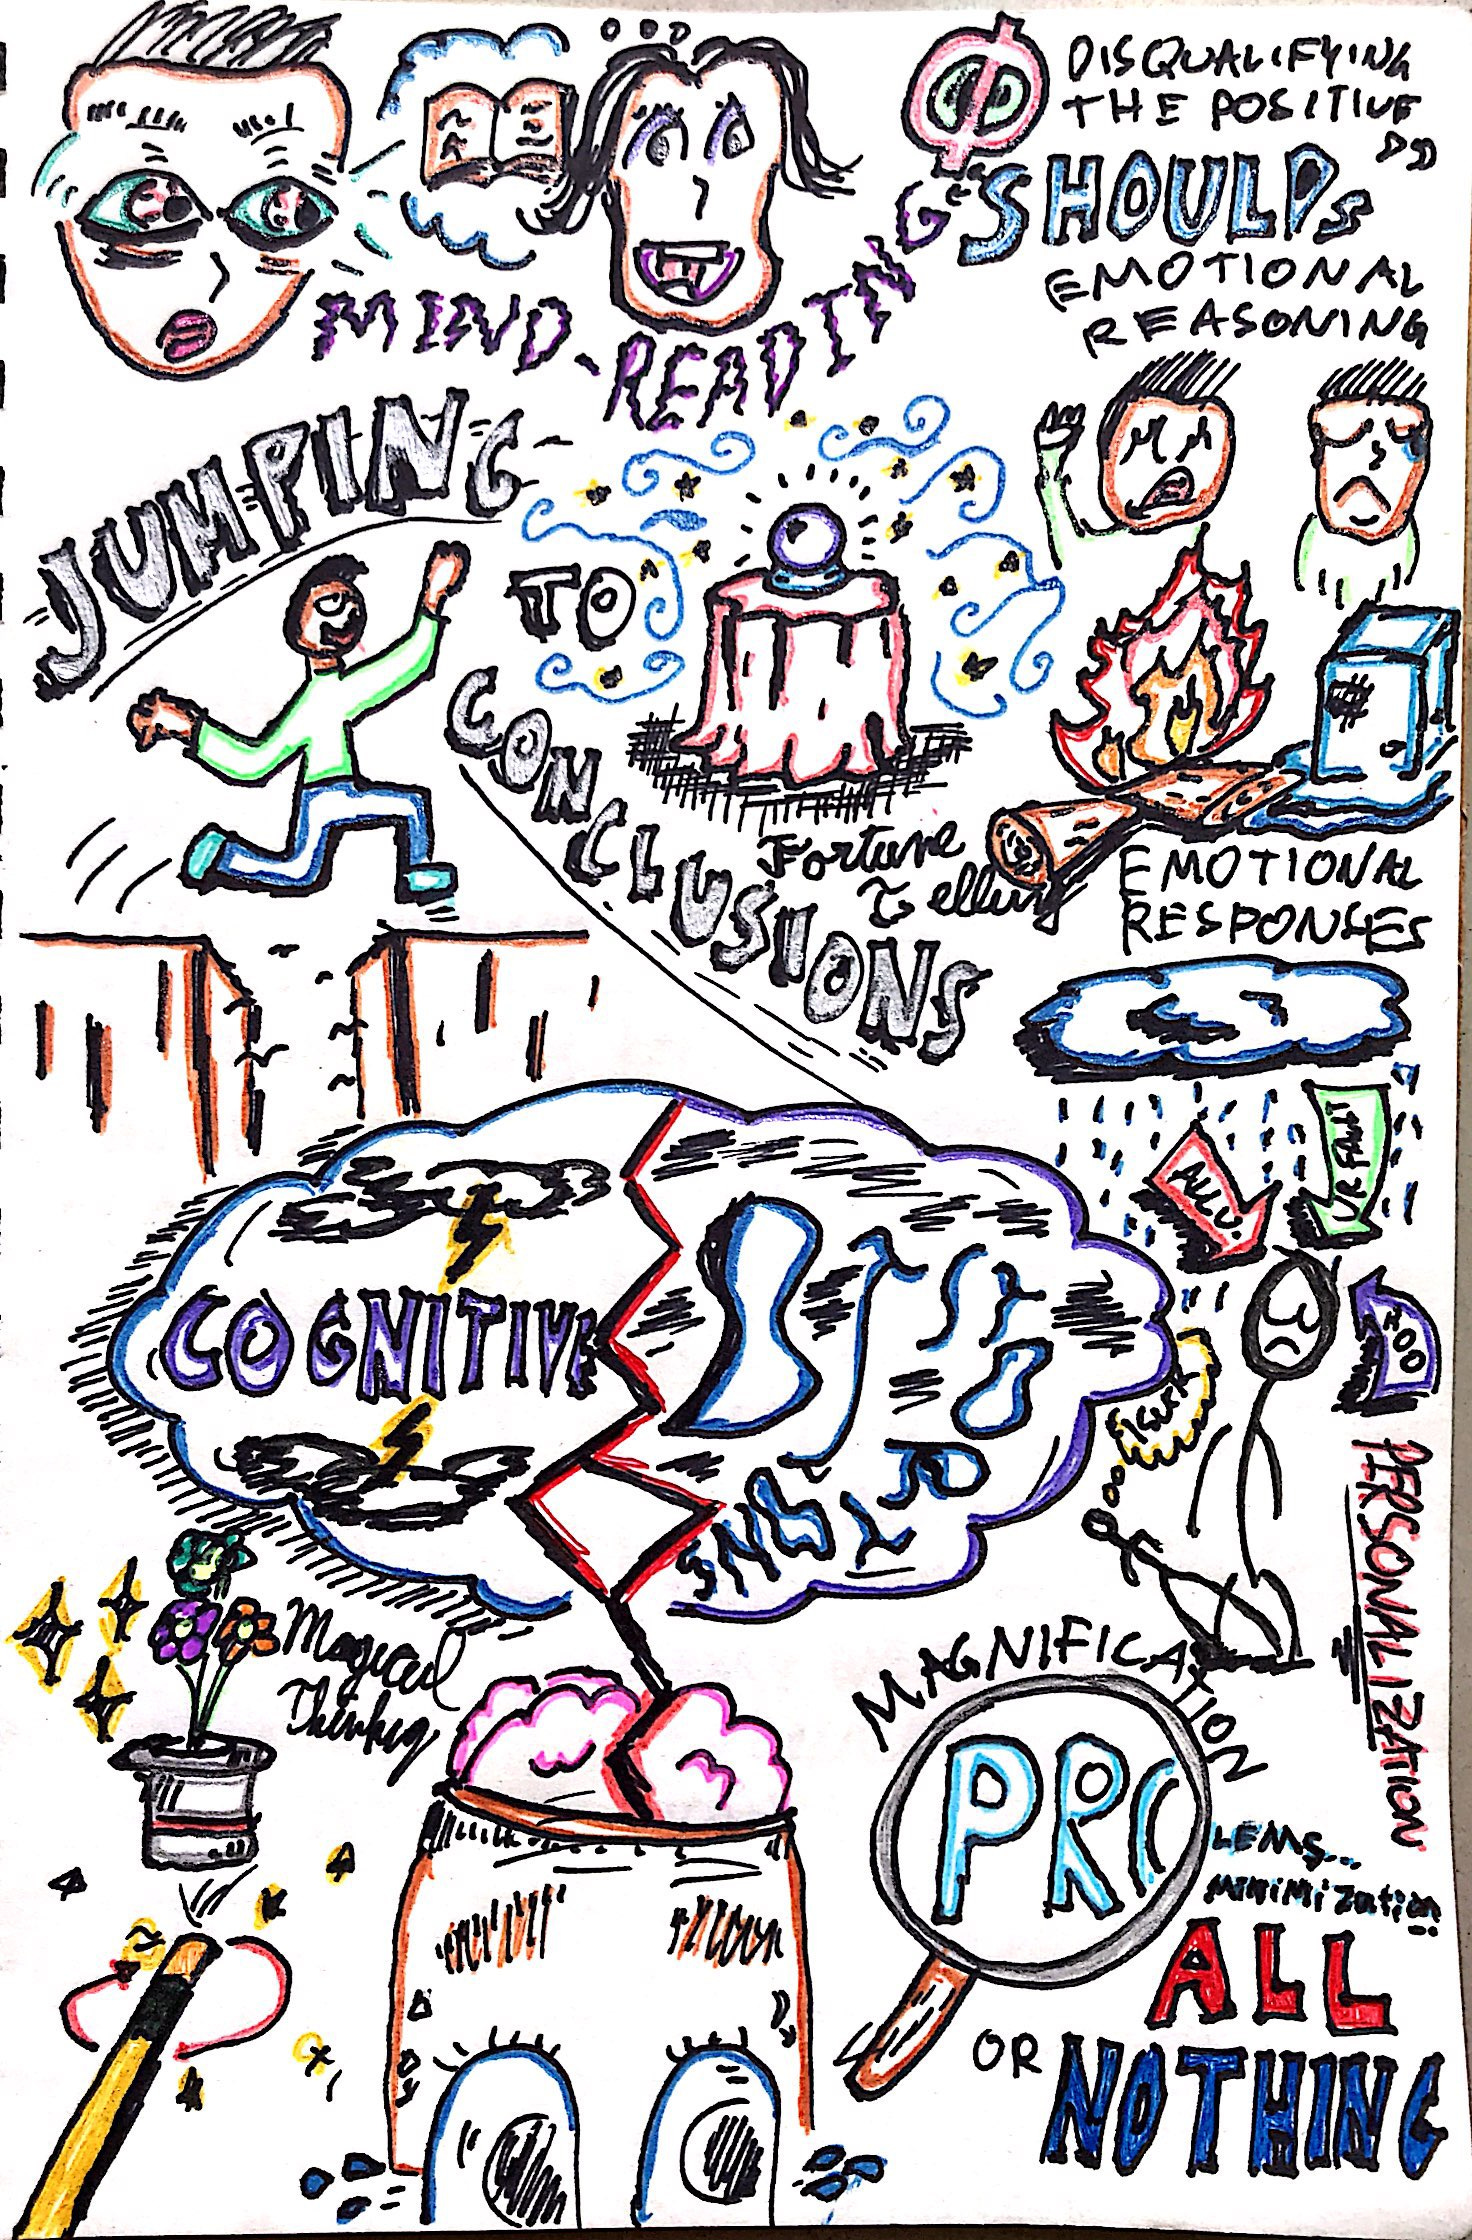 DISQUALIFYING
THE POSITIVE
"SHOULDS"
EMOTIONAL
REASONING
MIND-READING
JUMPING
TO
CONCLUSIONS
Fortune
Telling
EMOTIONAL
RESPONSES
ALL U.
UR FAULT
YOO
I SUCK
PERSONALIZATION
COGNITIVE
Magical
Thinking
MAGNIFICATION
PRO
LEMS...
MINIMIZATION
ALL
OR NOTHING